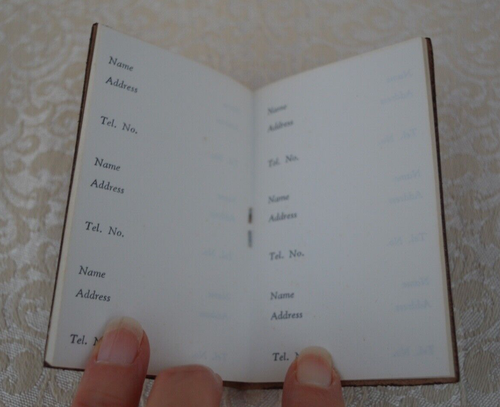 Name
Address
Tel. No.
Name
Address
Tel. No.
Name
Address
Tel. No.
Name
Address
Tel. No.
Name
Address
Tel. No.
Name
Address
Tel.